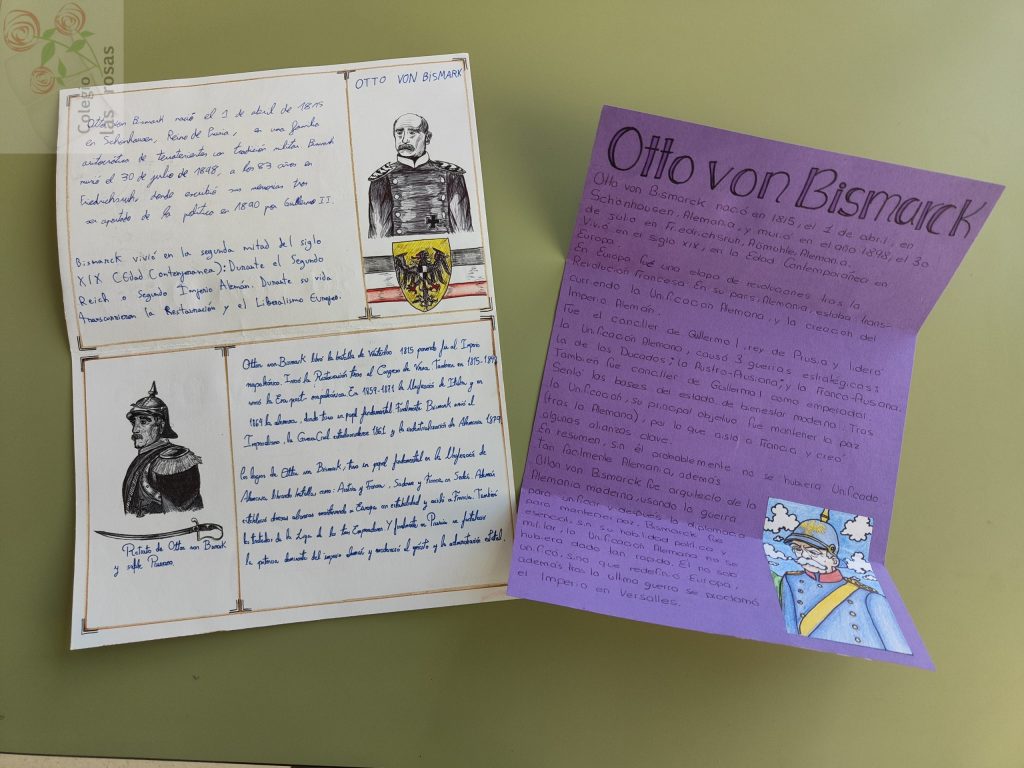 Colegio
las rosas
OTTO VON BISMARK
Otto von Bismark nació el 1 de abril de 1815
en Schönhausen, Reino de Prusia, en una familia
autocrática de terratenientes con tradición militar. Bismark
murió el 30 de julio de 1898, a los 83 años en
Friedrichsruh, donde escribió sus memorias tras
ser apartado de la política en 1890 por Guillermo II.
Bismarck vivió en la segunda mitad del siglo
XIX (Edad Contemporanea); Durante el Segundo
Reich o Segundo Imperio Alemán. Durante su vida
transcurrieron la Restauración y el Liberalismo Europeo.
Retrato de Otto von Bismark
y sable Prusiano.
Otto von Bismark libró la batalla de Waterloo 1815 poniendo fin al Imperio
napoleónico. Inició la Restauración tras el Congreso de Viena. También en 1815-1848
vivió la Era post-napoleónica. En 1859-1871 la Unificación de Italia y en
1864 la alemana, donde tuvo un papel fundamental. Finalmente Bismark vivió el
Imperialismo, la Guerra Civil estadounidense 1861 y la industrialización de Alemania 1879.
Los logros de Otto von Bismark, tuvo un papel fundamental en la Unificación de
Alemania, librando batallas como: Austria y Francia, Sadowa y Francia en Sedán. Además
estableció diversas alianzas manteniendo a Europa en estabilidad y aisló a Francia. También
los tratados de la Liga de los tres Emperadores. Y finalmente en Prusia se fortaleció
la potencia dominante del imperio alemán y modernizó el ejército y la administración estatal.
Otto von Bismarck
Otto von Bismarck nació en 1815, el 1 de abril, en
Schönhausen, Alemania, y murió en el año 1898, el 30
de julio en Friedrichsruh, Aumühle, Alemania.
Vivió en el siglo XIX, en la Edad Contemporánea en
Europa.
En Europa fue una etapa de revoluciones tras la
Revolución Francesa. En su país, Alemania, estaba trans-
curriendo la Unificación Alemana, y la creación del
Imperio Alemán.
Fue el canciller de Guillermo I, rey de Prusia y lideró
la Unificación Alemana, causó 3 guerras estratégicas:
la de los Ducados; la Austro-Prusiana; y la Franco-Prusiana.
También fue canciller de Guillermo I como emperador.
Sentó las bases del estado de bienestar moderno. Tras
la Unificación, su principal objetivo fue mantener la paz
(tras la Alemana), por lo que aisló a Francia y creó
algunas alianzas clave.
En resumen, sin él probablemente no se hubiera unificado
tan fácilmente Alemania, además
Otto von Bismarck fue arquitecto de la
Alemania moderna, usando la guerra
para unificar y después la diplomacia
para mantener paz. Bismarck fue
esencial, sin su habilidad política y
militar la Unificación Alemana no se
hubiera dado tan rápido. Él no solo
unificó, sino que redefinió Europa,
además tras la última guerra se proclamó
el Imperio en Versalles.